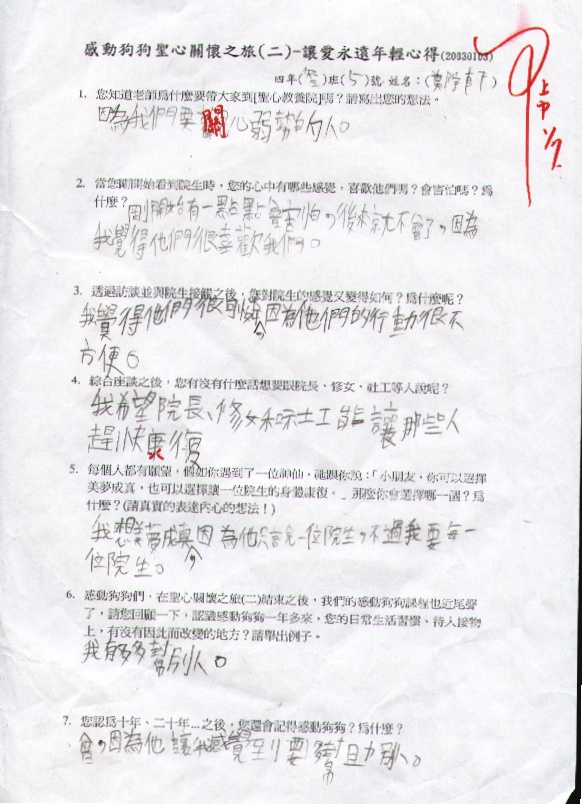 感動狗狗聖心關懷之旅(二)-讓愛永遠年輕心得(20030103)
四年( )班(5)號 姓名：( )
甲上
1/7
1. 您知道老師爲什麼要帶大家到[聖心教養院]嗎？請寫出您的想法。
因為我們要關心弱勢的人。
2. 當您剛開始看到院生時，您的心中有哪些感覺，喜歡他們嗎？會害怕嗎？爲
什麼？剛開始有一點點會害怕，後來就不會了，因為
我覺得他們很喜歡我們。
3. 透過訪談並與院生接觸之後，您對院生的感覺又變得如何？爲什麼呢？
我覺得他們很 因為他們的行動很不
方便。
4. 綜合座談之後，您有沒有什麼話想要跟院長、修女、社工等人說呢？
我希望院長、修女和 工能讓那些人
趕快康復
5. 每個人都有願望，假如你遇到了一位神仙，祂跟你說：「小朋友，你可以選擇
美夢成真，也可以選擇讓一位院生的身體康復。」那麼你會選擇哪一個？爲
什麼？(請真實的表達內心的想法！)
我想美夢成真，因為他只說一位院生，不過我要每一
位院生。
6. 感動狗狗們，在聖心關懷之旅(二)結束之後，我們的感動狗狗課程也近尾聲
了，請您回顧一下，認識感動狗狗一年多來，您的日常生活習慣、待人接物
上，有沒有因此而改變的地方？請舉出例子。
我有多多幫別人。
7. 您認爲十年、二十年...之後，您還會記得感動狗狗？爲什麼？
會，因為他讓我感覺到要幫助別人。